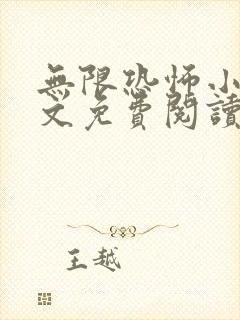 無限恐怖小
文免費閱讀
王越